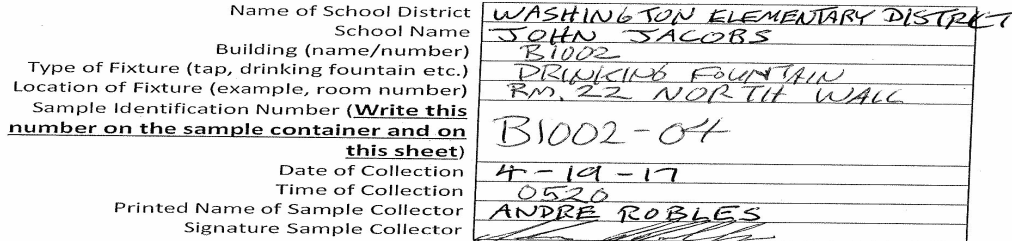 Name of School District WASHINGTON ELEMENTARY DISTRICT
School Name JOHN JACOBS
Building (name/number) B1002
Type of Fixture (tap, drinking fountain etc.) DRINKING FOUNTAIN
Location of Fixture (example, room number) RM. 22 NORTH WALL
Sample Identification Number (Write this
number on the sample container and on B1002-04
this sheet)
Date of Collection 4-19-17
Time of Collection 0520
Printed Name of Sample Collector ANDRE ROBLES
Signature Sample Collector